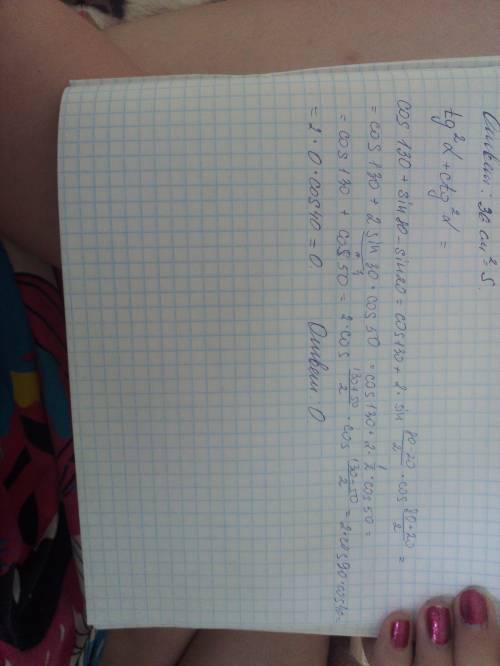 Ответ: 36 см² S.
tg²α + ctg²α =
cos 130 + sin 80 - sin 20 = cos 130 + 2 · sin (80-20)/2 · cos (80+20)/2 =
= cos 130 + 2 sin 30 · cos 50 = cos 130 + 2 · 1/2 · cos 50 =
= cos 130 + cos 50 = 2 · cos (130+50)/2 · cos (130-50)/2 = 2 · cos 90 · cos 40 =
= 2 · 0 · cos 40 = 0 Ответ: 0